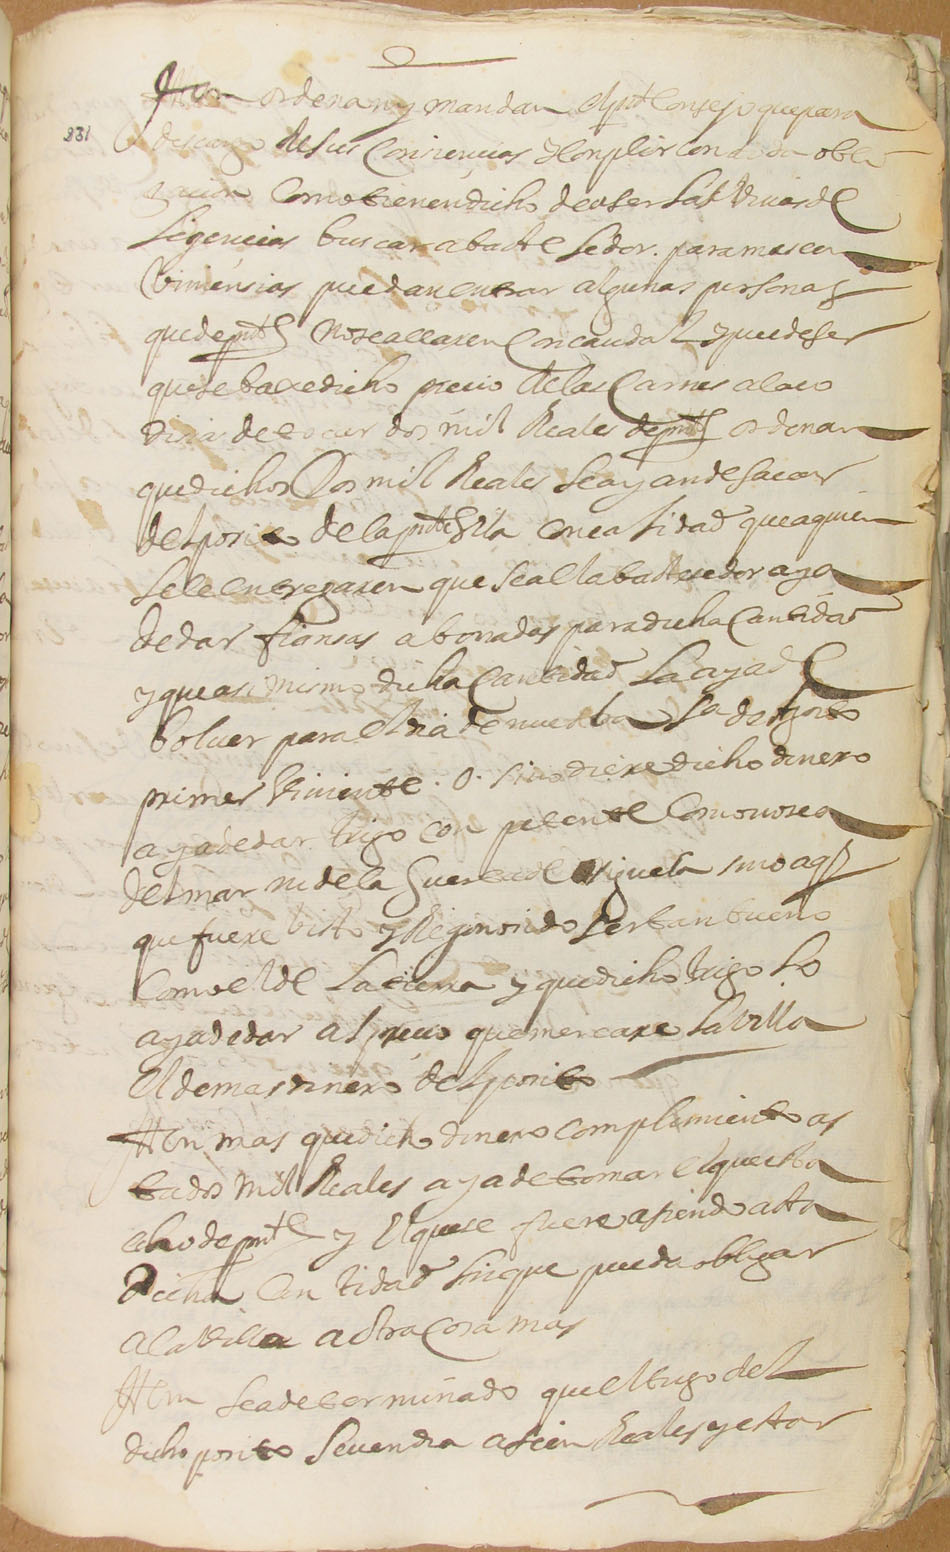 Item ordenan y mandan el pnte Consejo que para
231
descargo de sus Conciencias y Conplir con su obli
gacion Como tienen dicho de aser las diuersas de
ligencias buscar abastesedor. para mas con
viniensias puedan entrar algunas personas
que de pnte no se allaren Con caudal y puede ser
que se baxe dicho precio de las Carnes a la co
dicia de tocar dos mil Reales de pnte ordenan
que dichos Dos mil Reales se ayan de sacar
del posito de la pnte Villa con calidad que a quien
se le entregaren que sea el abastesedor aya
de dar fiansas abonadas para dicha Cantidad
y que asi mismo dicha Cantidad la aya de
boluer para el dia de nuestra sa de Agosto
primer viniente. o. si no diere dicho dinero
aya de dar trigo con pe Como no sea
del mar ni de la Guerta de Origuela sino aq
que fuere bisto y Regonosido ser tan bueno
Como el de la tierra y que dicho trigo lo
aya de dar al precio que mercare la Villa
el demas dinero del posito
Item mas que dicho dinero complimiento as
ta dos mil Reales aya de tomar el que esta
echo de pnte y el que se fuere asiendo asta
Dicha Cantidad sin que pueda obligar
a la Villa a otra Cosa mas
Item se a determinado que el trigo del
dicho posito se uenda a sien Reales y estar